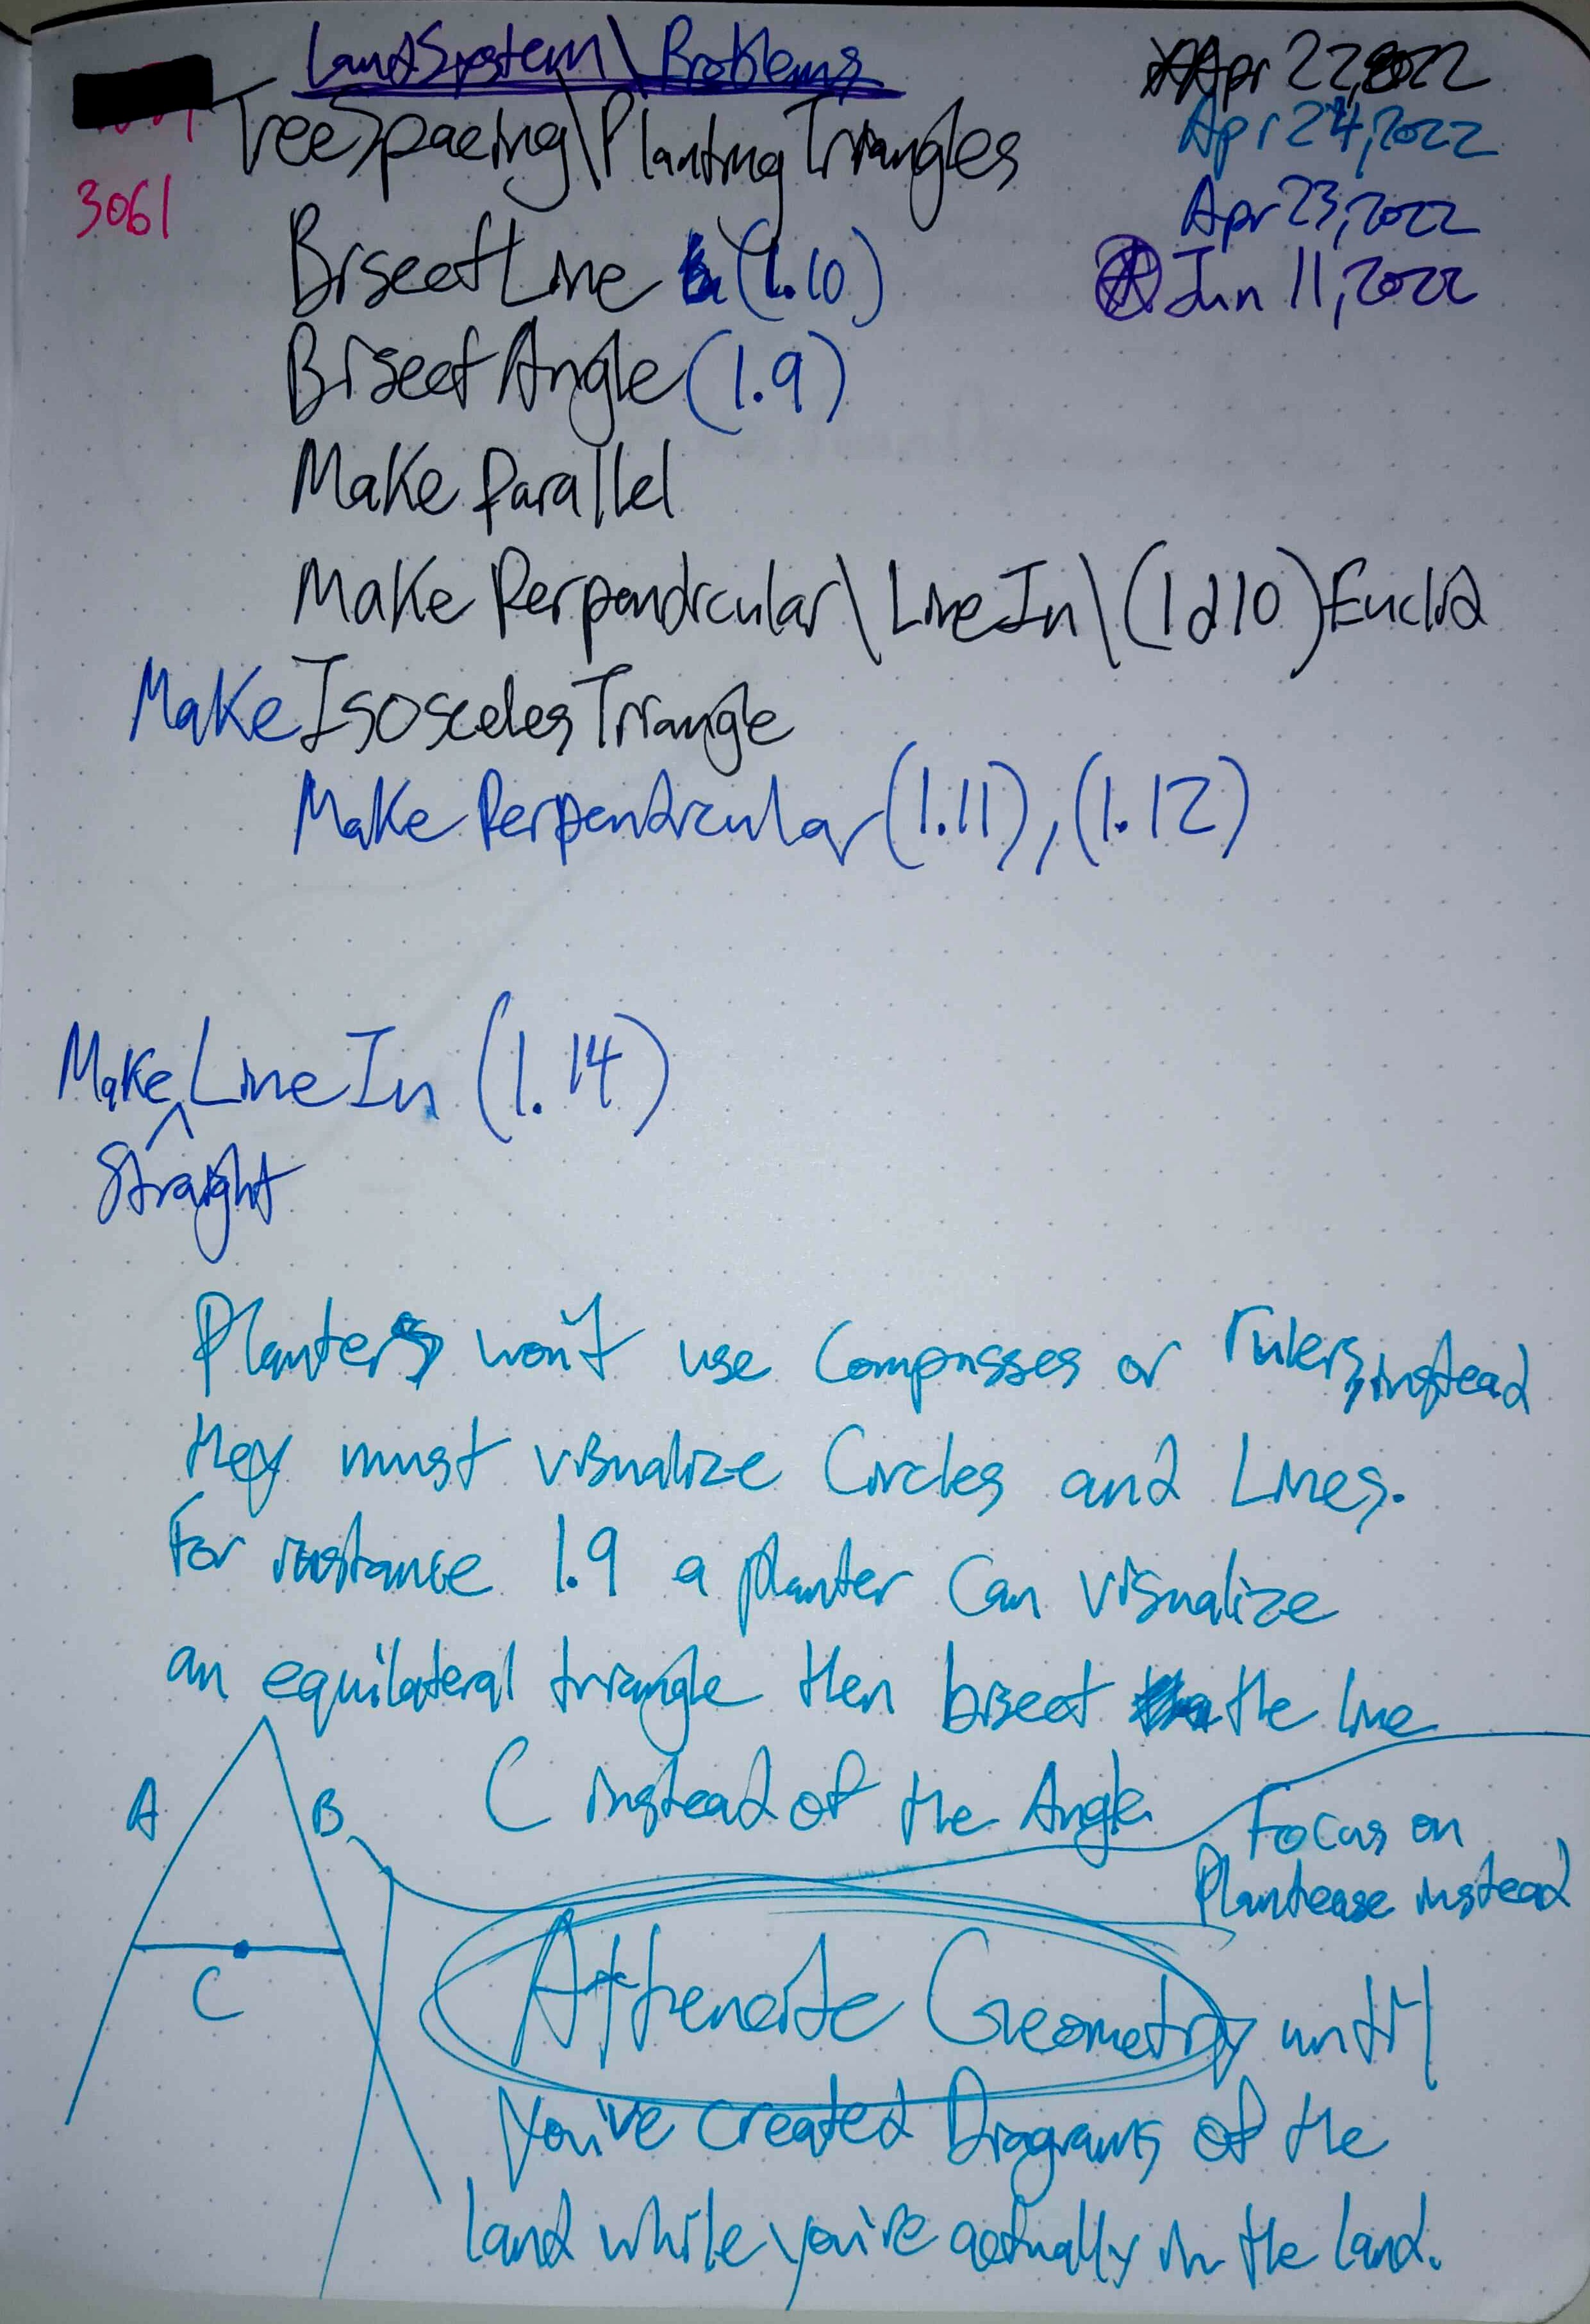 LandSystem\Problems
Apr 22, 2022
TreeSpacing\PlantingTriangles
Apr 24, 2022
3061
Apr 23, 2022
Bisect Line (1.10)
Jun 11, 2022
Bisect Angle (1.9)
Make Parallel
Make Perpendicular\LineIn\(1d10)Euclid
Make Isosceles Triangle
Make Perpendicular (1.11), (1.12)
Make LineIn (1.14)
^
Straight
Planters won't use Compasses or rulers, instead
they must visualize Circles and Lines.
For instance 1.9 a planter can visualize
an equilateral triangle then bisect the line
C instead of the Angle
A
B
Focus on
Plantease instead
C
Geometry until
you've created Diagrams of the
land while you're actually in the land.